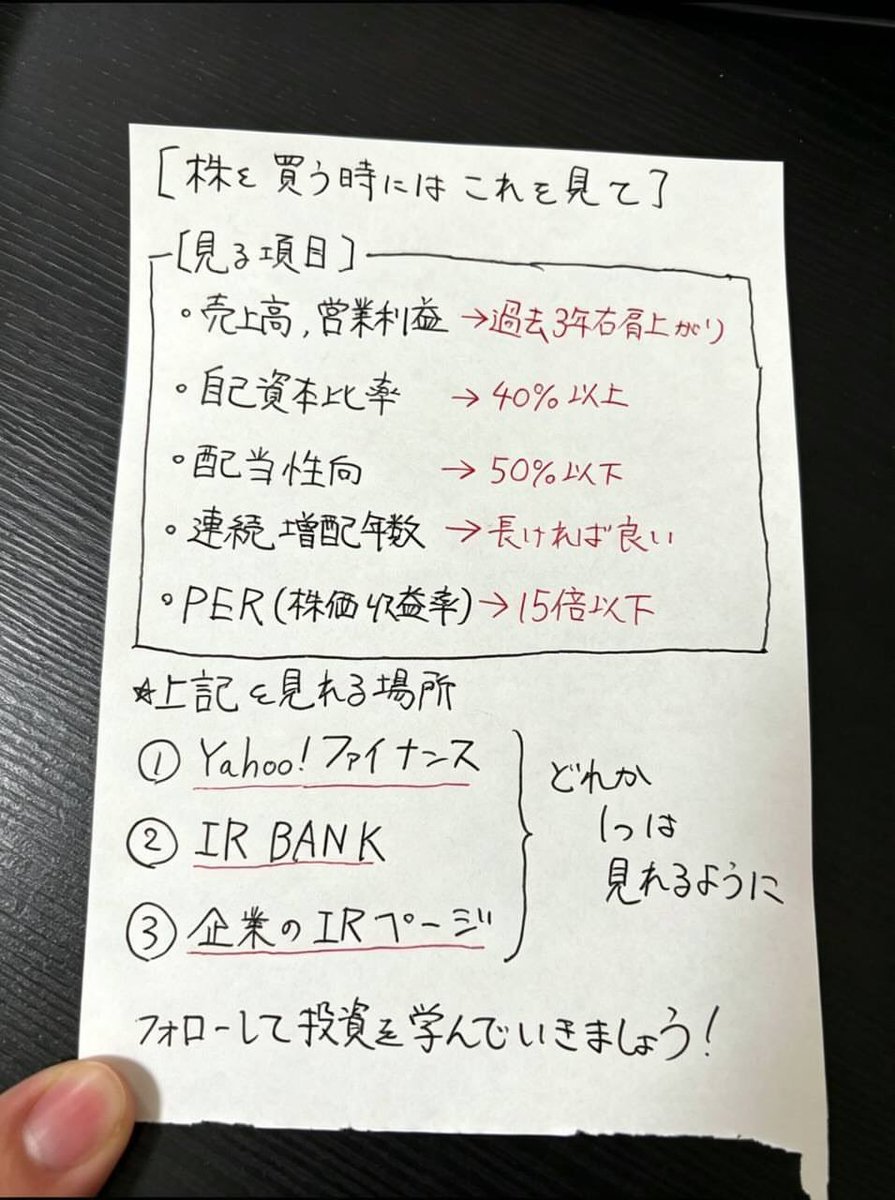 [株を買う時にはこれを見て]
[見る項目]
・売上高,営業利益→過去3年右肩上がり
・自己資本比率→40%以上
・配当性向→50%以下
・連続増配年数→長ければ良い
・PER(株価収益率)→15倍以下
☆上記を見れる場所
① Yahoo!ファイナンス
② IR BANK
③ 企業のIRページ
どれか
1つは
見れるように
フォローして投資を学んでいきましょう!